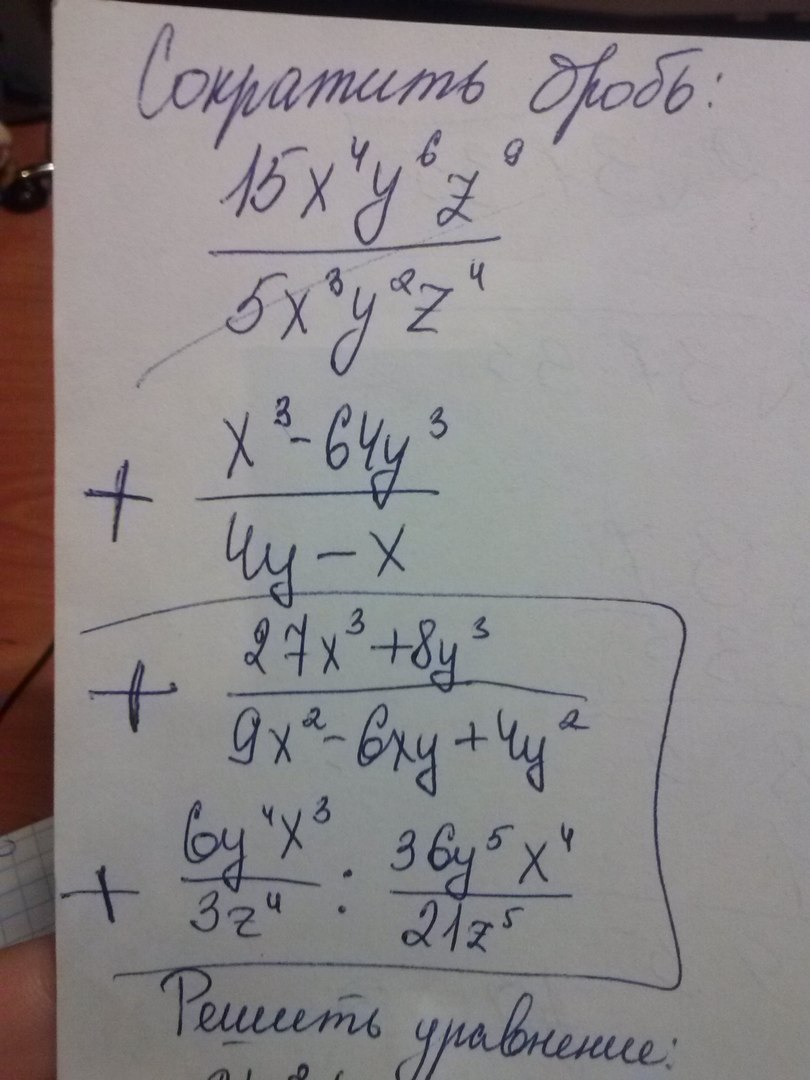 Сократить дробь:
15x⁴y⁶z⁹
5x³y²z⁴
x³-64y³
+
4y-x
27x³+8y³
+
9x²-6xy+4y²
6y⁴x³ : 36y⁵x⁴
+
3z⁴ 21z⁵
Решить уравнение: